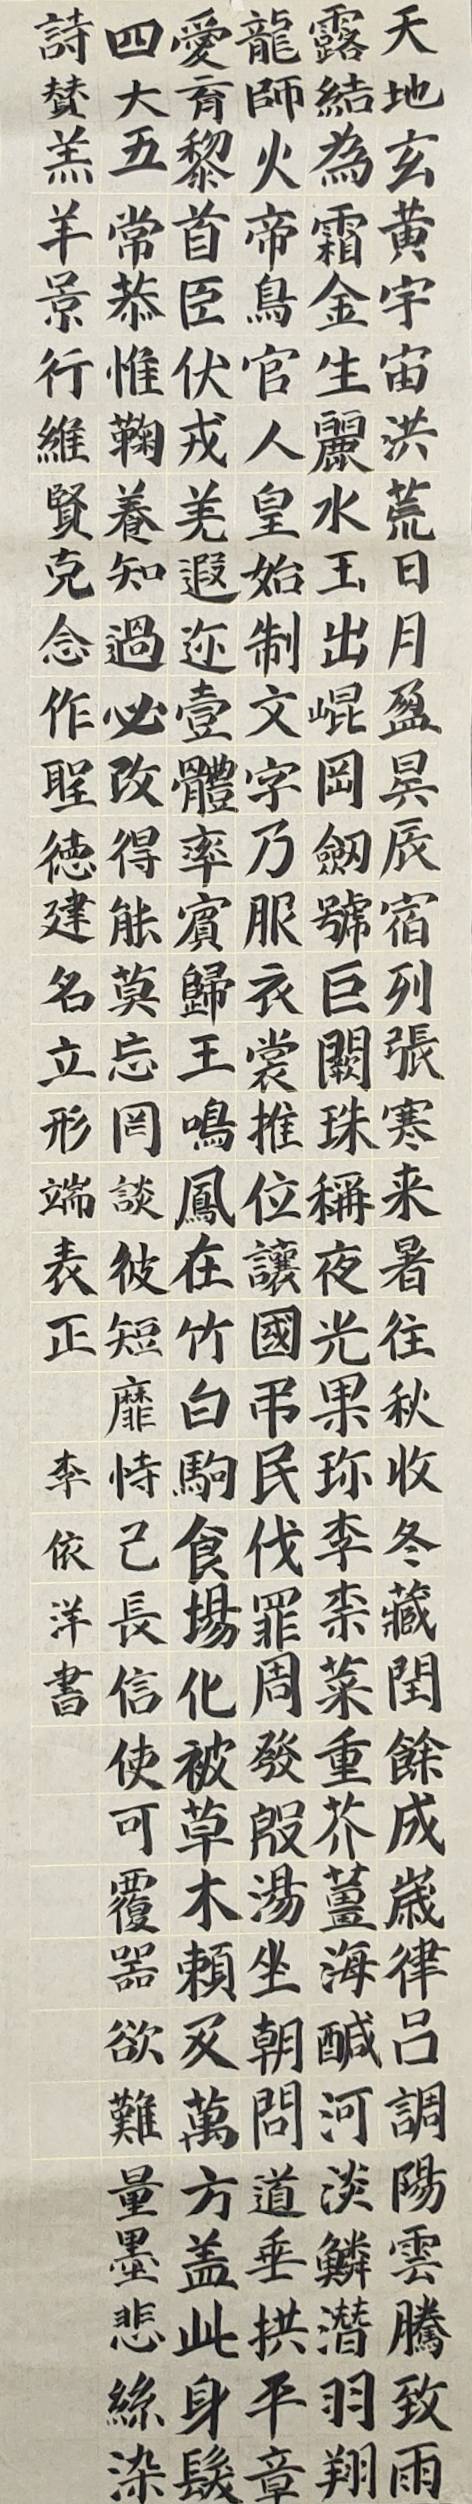 天地玄黃宇宙洪荒日月盈昃辰宿列張寒来暑往秋收冬藏閏餘成歲律呂調陽雲騰致雨
露結為霜金生麗水玉出崐岡劒號巨闕珠稱夜光果珎李柰菜重芥薑海醎河淡鱗潛羽翔
龍師火帝鳥官人皇始制文字乃服衣裳推位讓國弔民伐罪周發殷湯坐朝問道垂拱平章
愛育黎首臣伏戎羌遐迩壹體率賓歸王鳴鳳在竹白駒食場化被草木賴及萬方盖此身髮
四大五常恭惟鞠養知過必改得能莫忘罔談彼短靡恃己長信使可覆器欲難量墨悲絲染
詩賛羔羊景行維賢克念作聖德建名立形端表正
李依洋書